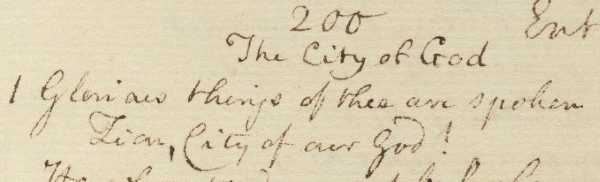 200 Ent
The City of God
1 Glorious things of thee are spoken
Zion, City of our God!